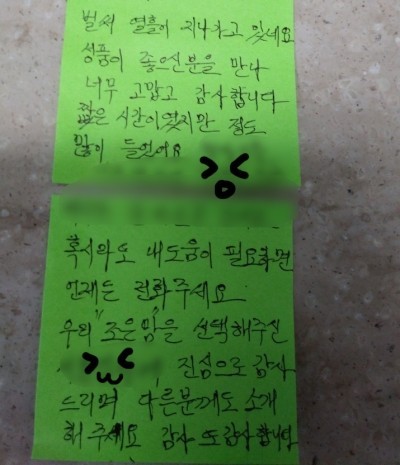 벌써 열흘이 지나가고 있네요
성품이 좋으신분을 만나
너무 고맙고 감사합니다
짧은 시간이였지만 정도
많이 들었어요
혹시라도 내도움이 필요하면
언제든 전화주세요
우리 "조은맘"을 선택해주신
진심으로 감사
드리며 다른분께도 소개
해주세요 감사 또 감사합니다